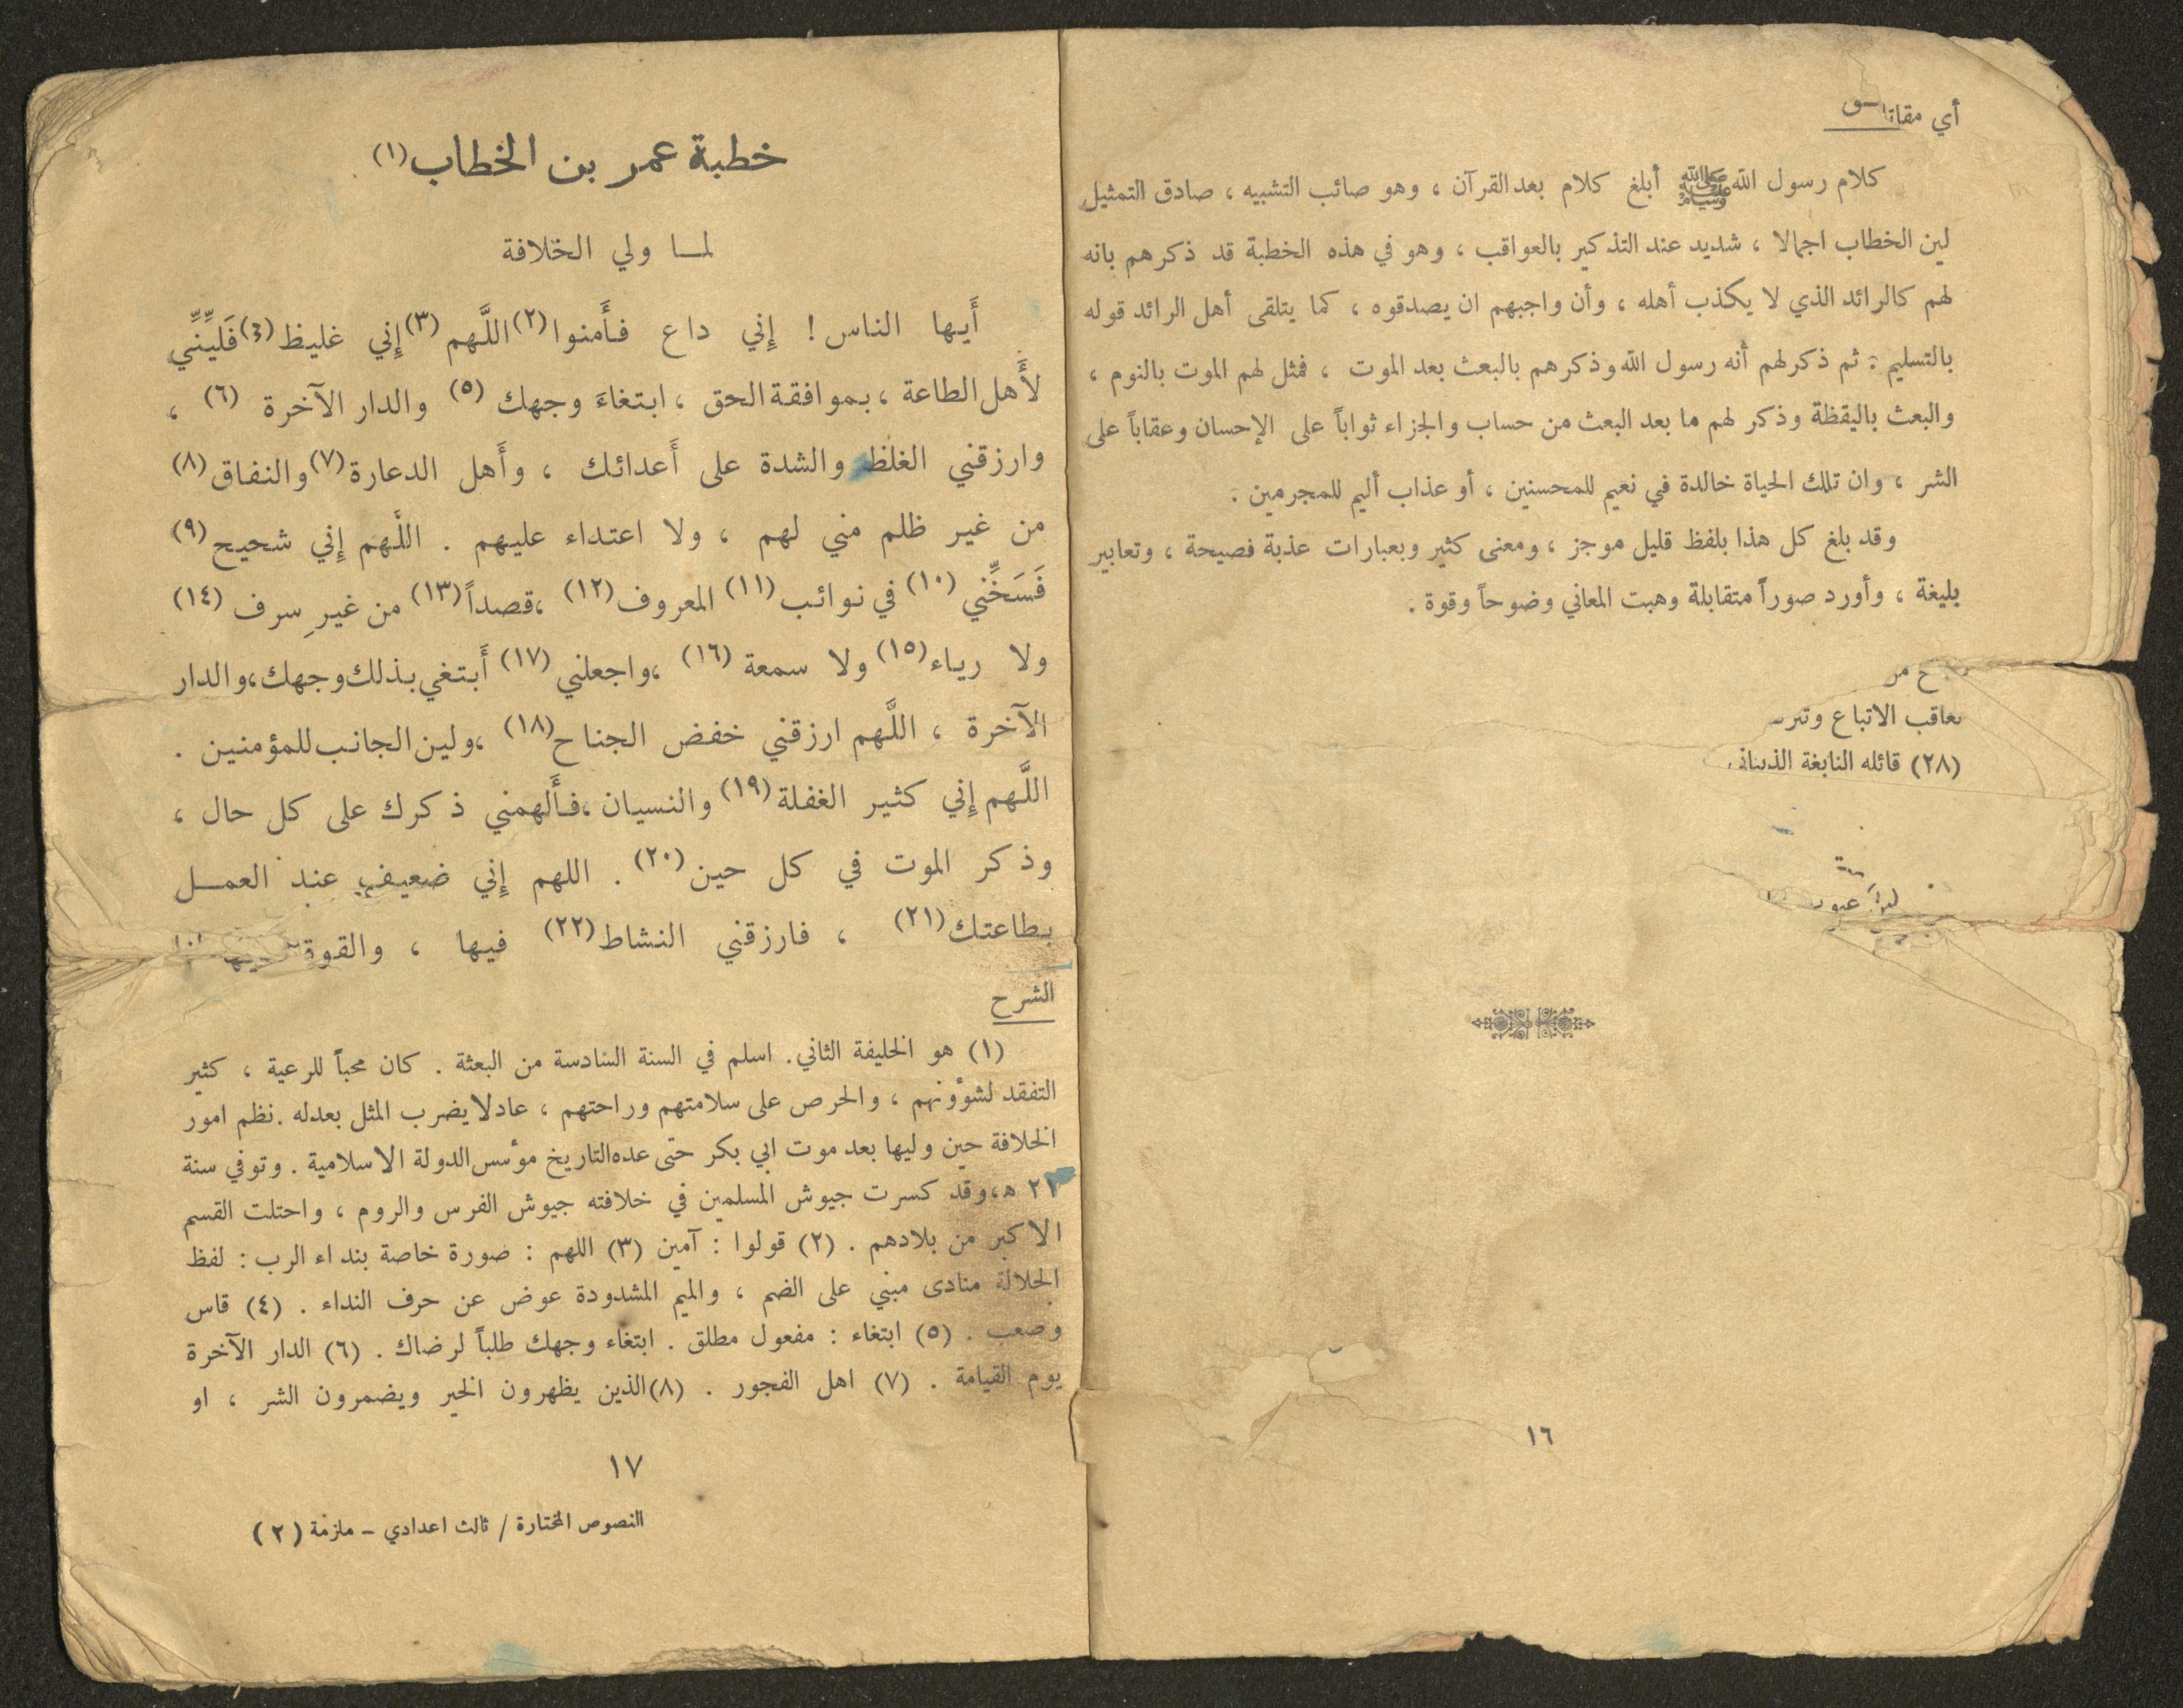 أي
كلام رسول الله ﷺ أبلغ كلام بعد القرآن ، وهو صائب التشبيه ، صادق التمثيل
لين الخطاب اجمالا ، شديد عند التذكير بالعواقب ، وهو في هذه الخطبة قد ذكرهم بانه
لهم كالرائد الذي لا يكذب أهله ، وأن واجبهم ان يصدقوه ، كما يتلقى أهل الرائد قوله
بالتسليم . ثم ذكر لهم أنه رسول الله وذكرهم بالبعث بعد الموت ، فمثل لهم الموت بالنوم ،
والبعث باليقظة وذكر لهم ما بعد البعث من حساب والجزاء ثواباً على الإحسان وعقاباً على
الشر ، وان تلك الحياة خالدة في نعيم للمحسنين ، أو عذاب أليم للمجرمين .
وقد بلغ كل هذا بلفظ قليل موجز ، ومعنى كثير وبعبارات عذبة فصيحة ، وتعابير
بليغة ، وأورد صوراً متقابلة وهبت المعاني وضوحاً وقوة .
الاتباع
(٢٨) قائله النابغة الذبياني
١٦
خطبة عمر بن الخطاب (١)
لمـا ولي الخلافة
أَيها الناس ! إِني داع فأَمنوا (٢) اللَّهم (٣) إِني غليظ (٤) فَليِّنِّي
لأَهل الطاعة ، بموافقة الحق ، ابتغاءَ وجهك (٥) والدار الآخرة (٦) ،
وارزقني الغلظ والشدة على أَعدائك ، وأَهل الدعارة (٧) والنفاق (٨)
من غير ظلم مني لهم ، ولا اعتداء عليهم . اللَّهم إِني شحيح (٩)
فَسَخِّني (١٠) في نوائب (١١) المعروف (١٢) ، قصداً (١٣) من غيرِ سرف (١٤)
ولا رياء (١٥) ولا سمعة (١٦) ، واجعلني (١٧) أَبتغي بذلك وجهك ، والدار
الآخرة ، اللَّهم ارزقني خفض الجناح (١٨) ، ولين الجانب للمؤمنين .
اللَّهم إِني كثير الغفلة (١٩) والنسيان ، فأَلهمني ذكرك على كل حال ،
وذكر الموت في كل حين (٢٠) . اللهم إِني ضعيف عند العمـل
بطاعتك (٢١) ، فارزقني النشاط (٢٢) فيها ، والقوة
الشرح
(١) هو الخليفة الثاني . اسلم في السنة السادسة من البعثة . كان محباً للرعية ، كثير
التفقد لشؤونهم ، والحرص على سلامتهم وراحتهم ، عادلا يضرب المثل بعدله . نظم امور
الخلافة حين وليها بعد موت ابي بكر حتى عده التاريخ مؤسس الدولة الاسلامية . وتوفي سنة
ه ، وقد كسرت جيوش المسلمين في خلافته جيوش الفرس والروم ، واحتلت القسم
الاكبر من بلادهم . (٢) قولوا : آمين (٣) اللهم : صورة خاصة بنداء الرب : لفظ
الجلالة منادى مبني على الضم ، والميم المشدودة عوض عن حرف النداء . (٤) قاس
وصعب . (٥) ابتغاء : مفعول مطلق . ابتغاء وجهك طلباً لرضاك . (٦) الدار الآخرة
يوم القيامة . (٧) اهل الفجور . (٨) الذين يظهرون الخير ويضمرون الشر ، او
١٧
النصوص المختارة / ثالث اعدادي - ملزمة (٢)